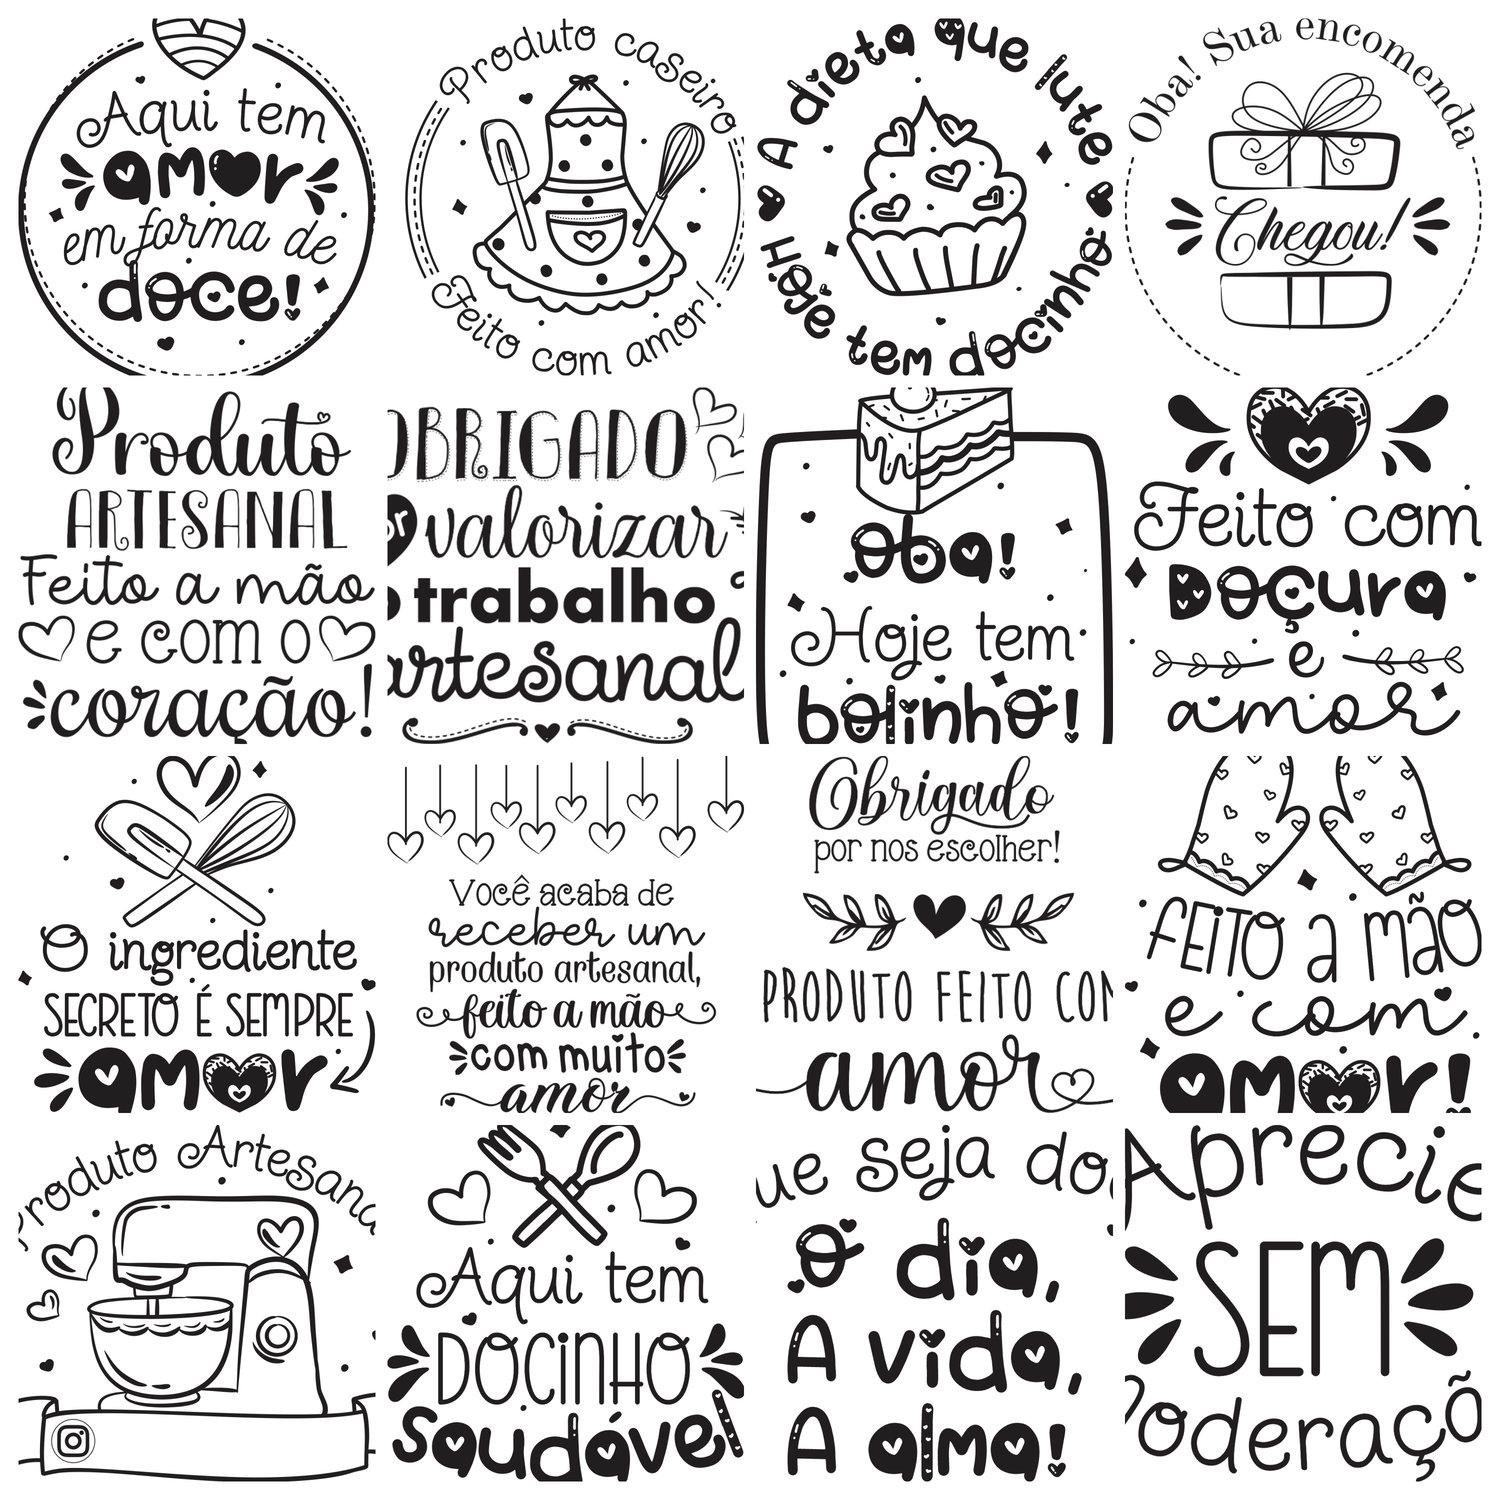 Aqui tem
amor
em forma de
doce!
Produto caseiro
Feito com amor!
A dieta que lute
Hoje tem docinho
Oba! Sua encomenda
Chegou!
Produto
ARTESANAL
Feito a mão
e com o
coração!
OBRIGADO
or valorizar
o trabalho
artesanal
Oba!
Hoje tem
bolinho!
Feito com
Doçura
e
amor
O ingrediente
SECRETO É SEMPRE
amor
Você acaba de
receber um
produto artesanal,
feito a mão
com muito
amor
Obrigado
por nos escolher!
PRODUTO FEITO COM
amor
FEITO a MÃO
e com
amor!
Produto Artesana
Aqui tem
DOCINHO
saudável
ue seja do
O dia,
A vida,
A alma!
Aprecie
SEM
oderaçõ